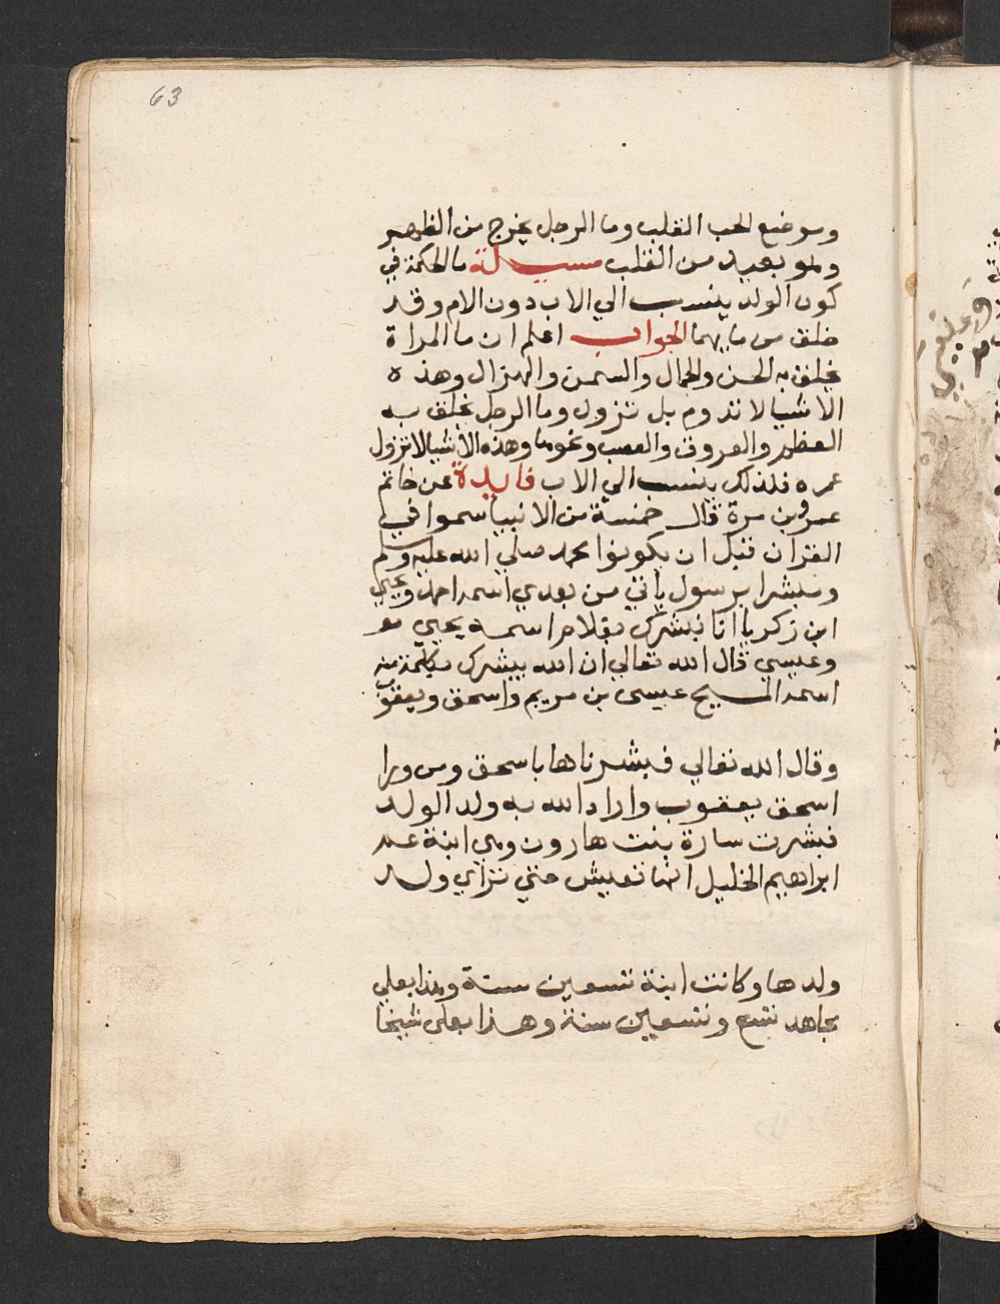 63
وموضع الحب القلب وما الرجل يخرج من الظهر
وهو بعيد من القلب مسيلة ما الحكمة في
كون الولد ينسب الي الاب دون الام وقد
خلق من مايهما الجواب اعلم ان ما المراة
يخلق به الحسن والجمال والسمن والهزال وهذه
الاشيا لا تدوم بل تزول وما الرجل يخلق به
العظم والعروق والعصب ونحوها وهذه الاشيا لا تزول
عمره فلذلك ينسب الي الاب فايدة عن خاتم
عمرو بن مرة قال خمسة من الانبيا سموا في
القران قبل ان يكونوا محمد صلي الله عليه وسلم
ومبشرا برسول ياتي من بعدي اسمه احمد ويحيي
ابن زكريا انا نبشرك بغلام اسمه يحيي
وعيسي قال الله تعالي ان الله يبشرك بكلمة منه
اسمه المسيح عيسى بن مريم واسحق ويعقوب
وقال الله تعالي فبشرناها باسحق ومن ورا
اسحق يعقوب واراد الله به ولد الولد
فبشرت سارة بنت هارون وهي ابنة عم
ابراهيم الخليل انها تعيش حتي تراي ولد
ولدها وكانت ابنة تسعين سنة وهذا بعلي
مجاهد تسع وتسعين سنة وهذا بعلي شيخا